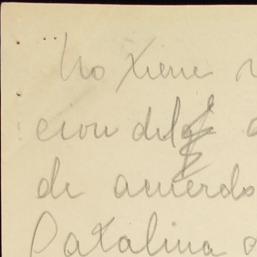 No tiene
cion del
de acuerdo
Catalina